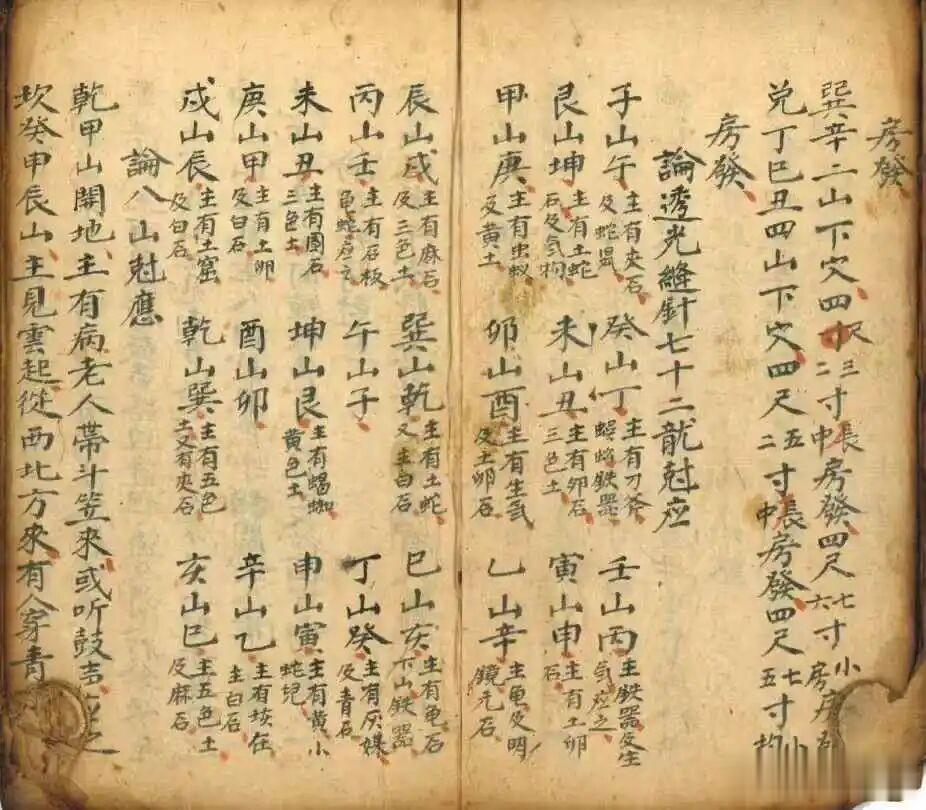 房發
巽辛二山下穴四寸尺三寸長房發四尺七寸小
二 中 六 房
兑丁巳丑四山下穴四尺五寸長房發四尺七寸小
二 中 五 均
房發
論透光縫針七十二龍尅应
子山午 主有夾石及蛇鼠 癸山丁 主有刀斧蜈蚣鉄器 壬山丙 主鉄器及生气应之
艮山坤 主有土蛇石及気狗 未山丑 主有卯石三色土 寅山申 主有土卵石
甲山庚 主有虫蚁及黄土 卯山酉 主有生気及土卵石 乙山辛 主亀及明鏡光石
辰山戌 主有麻石及三色土 巽山乾 主有土蛇又主白石 巳山亥 主有亀石下山鉄器
丙山壬 主有石板亀蛇应之 午山子 丁山癸 主有灰媒及青石
未山丑 主有圓石三色土 坤山艮 主有蝎蜘黄色土 申山寅 主有黄小蛇兒
庚山甲 主有土卵及白石 酉山卯 辛山乙 主有坟在主白石
戍山辰 主有土窟及白石 乾山巽 主有五色土又有夾石 亥山巳 主五色土及麻石
論八山尅應
乾甲山開地主有病老人帶斗笠來或听鼓吉之
坎癸甲辰山主見雲起從西北方來有人穿青